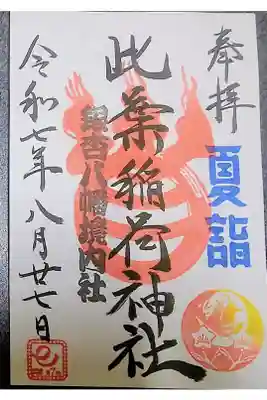 奉拝
夏詣
此葉稲荷神社
八幡境内社
令和七年八月廿七日